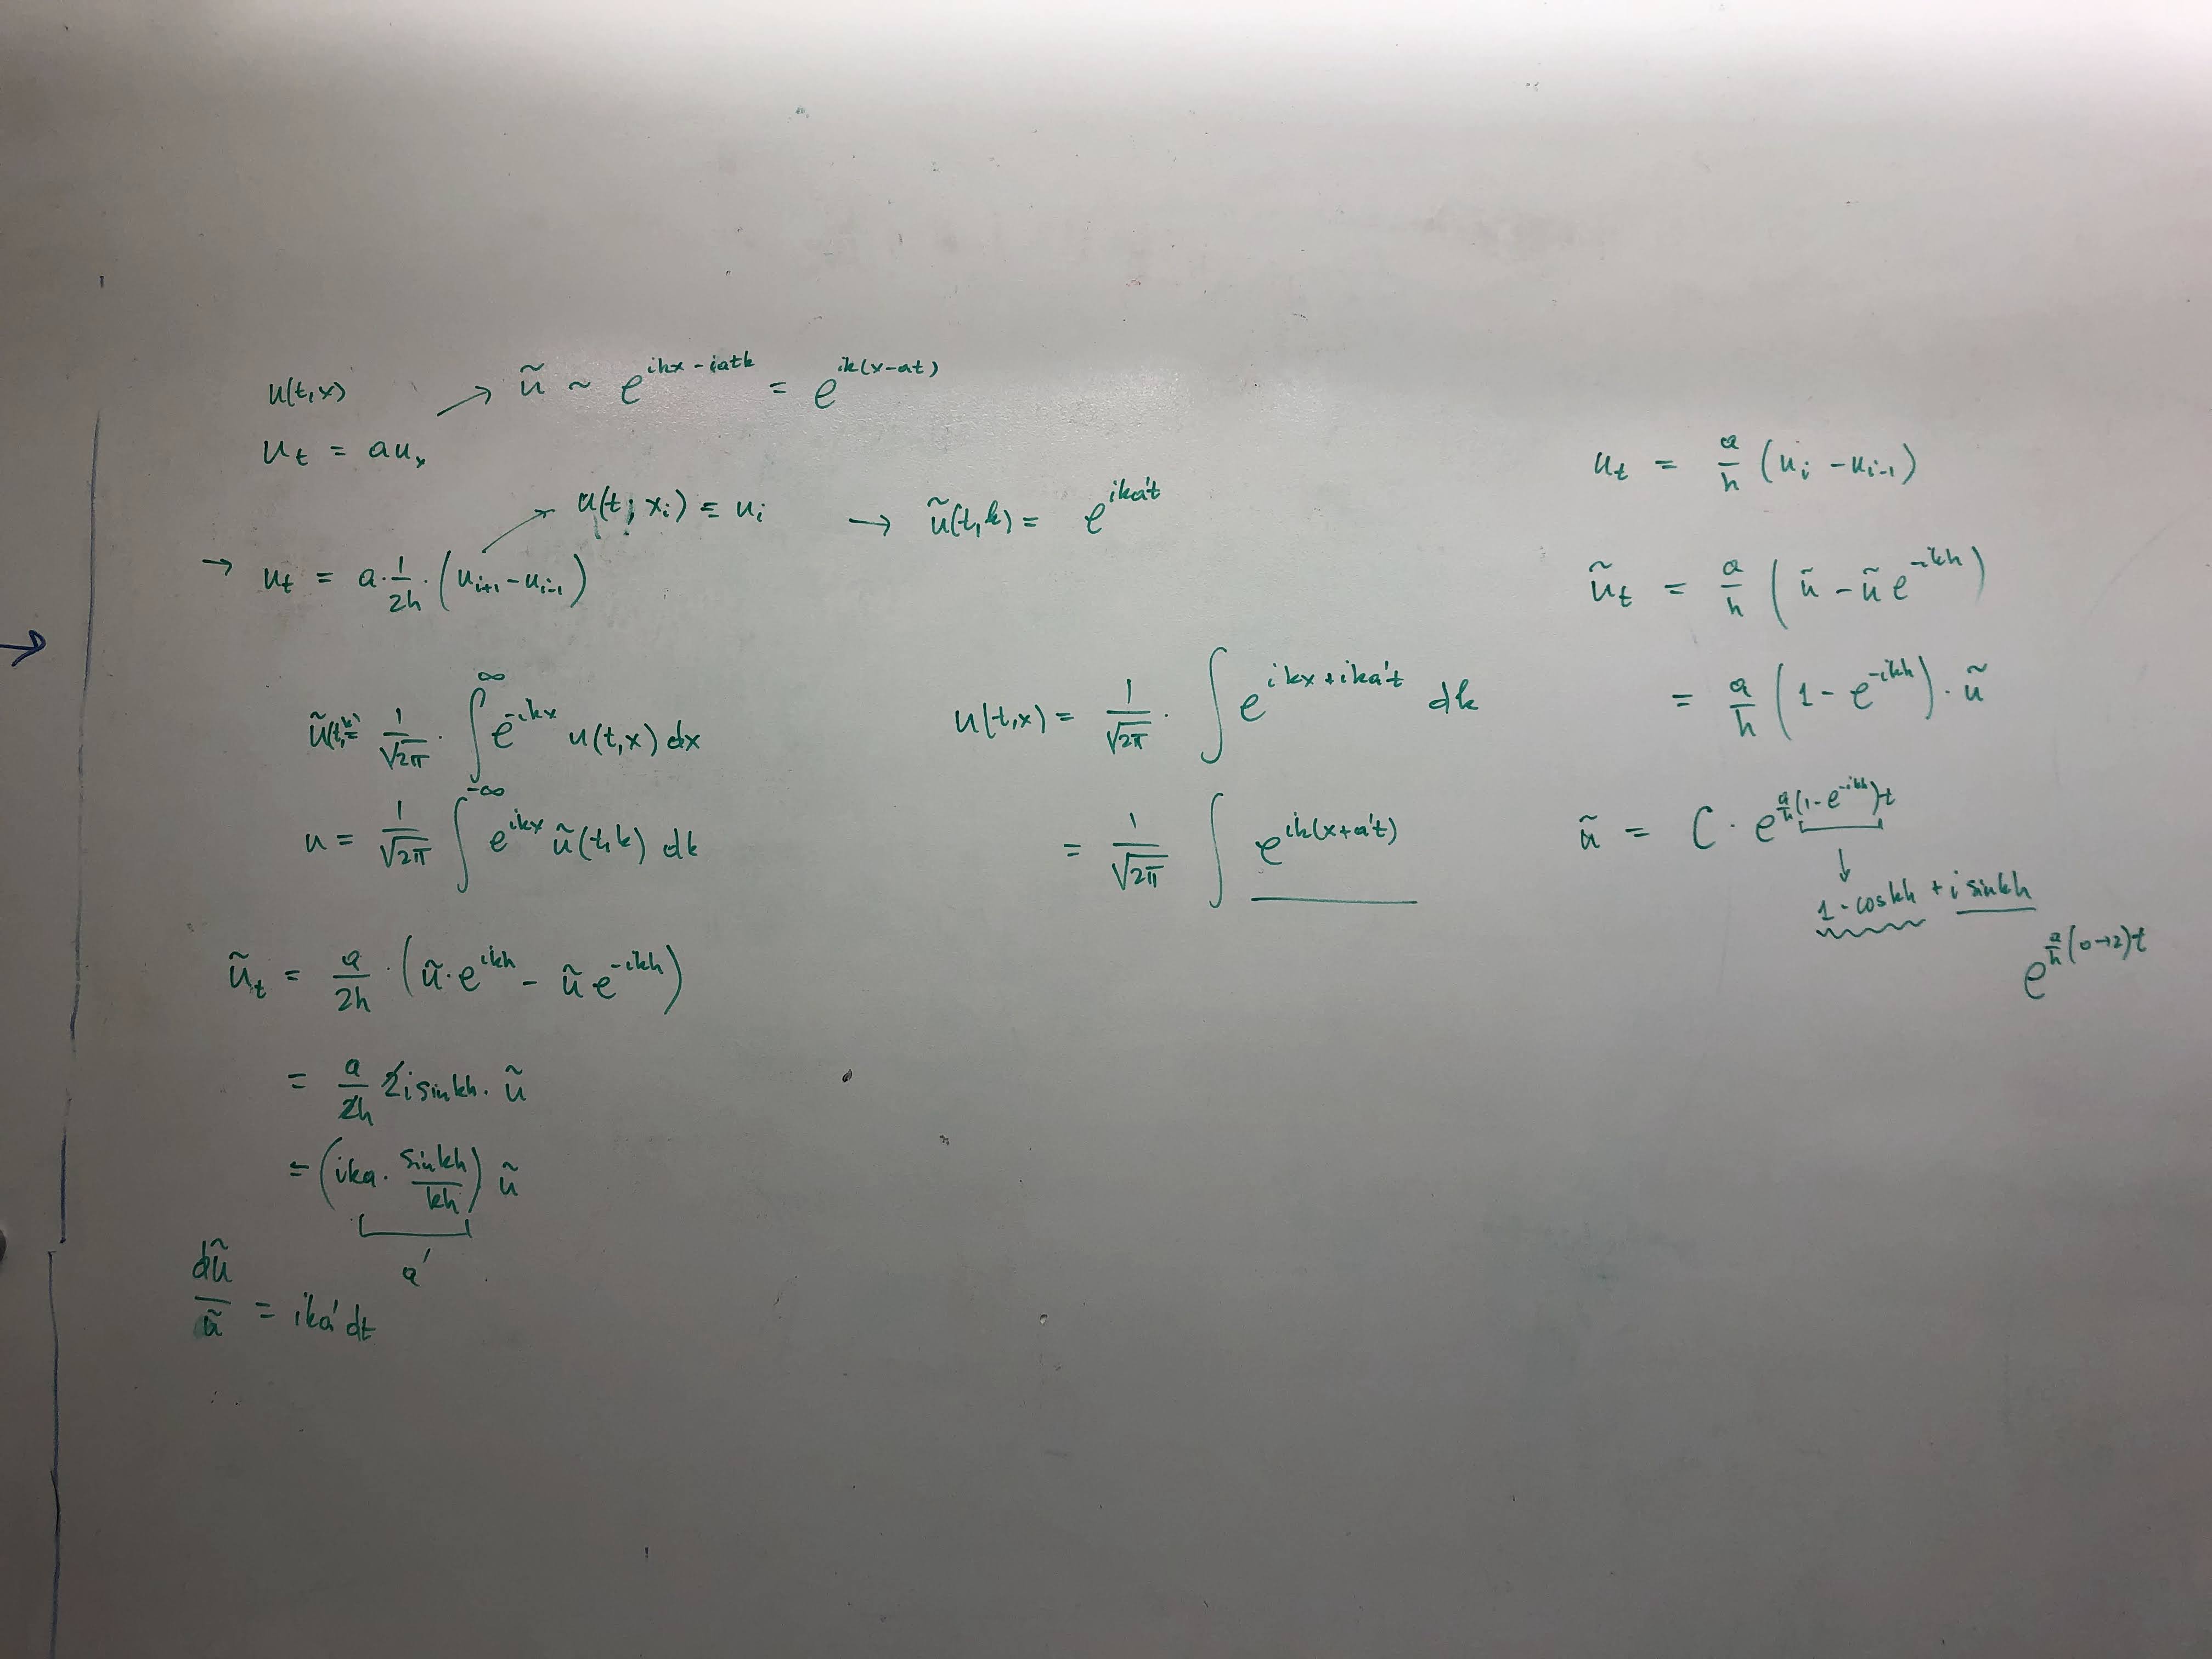 u(t,x)
→ ũ ~ e^{ikx-iatk} = e^{ik(x-at)}
u_t = au_x
u(t, x_i) = u_i → ũ(t,k) = e^{ika't}
→ u_t = a·1/2h·(u_{i+1} - u_{i-1})
ũ(t,k) = 1/√2π · ∫_{-∞}^{∞} e^{-ikx} u(t,x) dx
u = 1/√2π ∫ e^{ikx} ũ(t,k) dk
ũ_t = a/2h · (ũ·e^{ikh} - ũe^{-ikh})
= a/2h 2i sinkh · ũ
= (ika · sinkh/kh) ũ
a'
dũ/ũ = ika'dt
u(t,x) = 1/√2π · ∫ e^{ikx+ika't} dk
= 1/√2π ∫ e^{ik(x+a't)}
u_t = a/h (u_i - u_{i-1})
ũ_t = a/h (ũ - ũe^{-ikh})
= a/h (1 - e^{-ikh}) · ũ
ũ = C · e^{a/h(1-e^{-ikh})t}
↓
1 - coskh + i sinkh
e^{a/h(0→2)t}